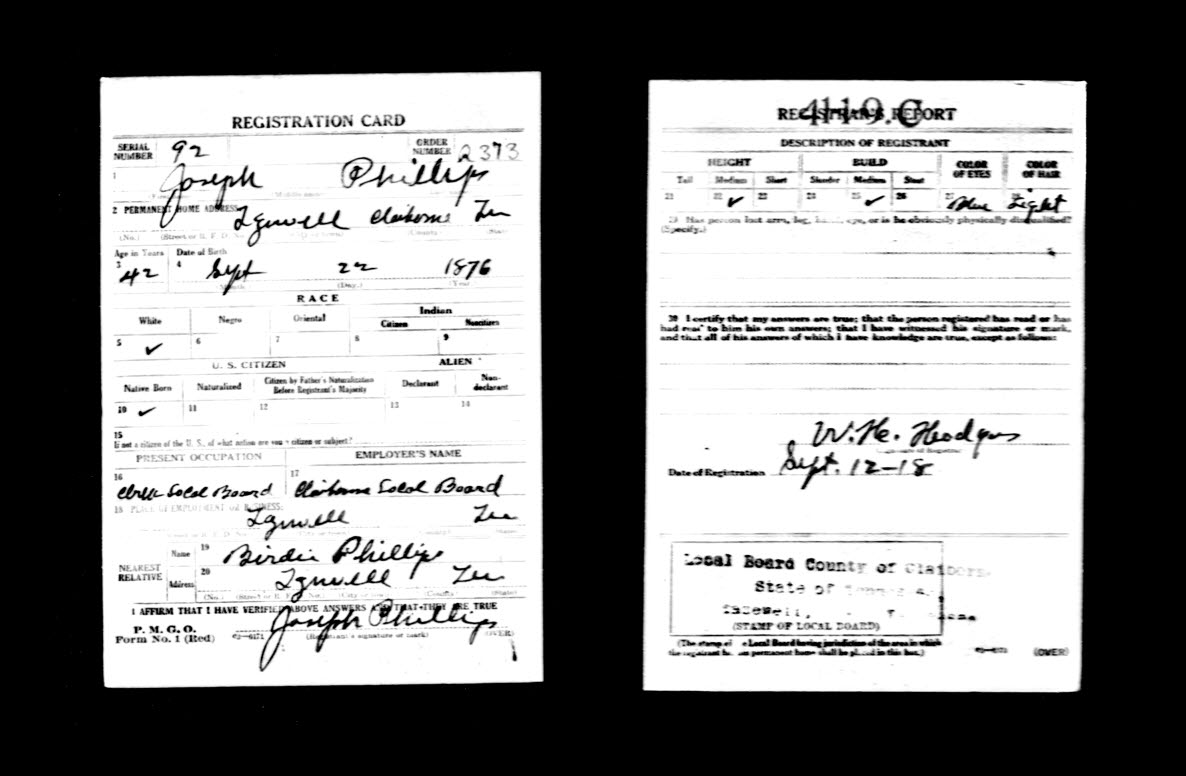 REGISTRATION CARD
SERIAL NUMBER 92 ORDER NUMBER 2373
1 Joseph Phillips
2 PERMANENT HOME ADDRESS: Claiborne Ten
(No.) (Street or R. F. D. No.) (County) (State)
Age in Years Date of Birth
3 42 4 Sept 22 1876
Month (Day.) (Year
RACE
White Negro Oriental Indian
Citizen Noncitizen
5 ✓ 6 7 8 9
U. S. CITIZEN ALIEN
Native Born Naturalized Citizen by Father's Naturalization Before Registrant's Majority Declarant Non-declarant
10 ✓ 11 12 13 14
15
If not a citizen of the U. S., of what nation are you a citizen or subject?
PRESENT OCCUPATION EMPLOYER'S NAME
16 Clerk Local Board 17 Claiborne Local Board
18 PLACE OF EMPLOYMENT OR BUSINESS:
Ten
NEAREST RELATIVE Name 19 Birdie Phillips
Address 20 Ten
(No.) (Street or R. F. D. No.) (City or town) (County) (State)
I AFFIRM THAT I HAVE VERIFIED ABOVE ANSWERS AND THAT THEY ARE TRUE
P. M. G. O.
Form No. 1 (Red) Joseph Phillips
(Registrant's signature or mark) (OVER)
REGISTRAR'S REPORT
DESCRIPTION OF REGISTRANT
HEIGHT BUILD COLOR OF EYES COLOR OF HAIR
Tall Medium Short Slender Medium Stout
21 22 ✓ 23 24 25 ✓ 26 27 Blue 28 Light
29 Has person lost arm, leg, hand, eye, or is he obviously physically disqualified?
(Specify.)
30 I certify that my answers are true; that the person registered has read or has
had read to him his own answers; that I have witnessed his signature or mark,
and that all of his answers of which I have knowledge are true, except as follows:
W. H. Hodges
Date of Registration Sept. 12-18
Local Board County of Claiborne
State of
Tazewell,
(STAMP OF LOCAL BOARD)
(The stamp of the Local Board having jurisdiction of the area in which
the registrant has his permanent home shall be placed in this box.)
(OVER)